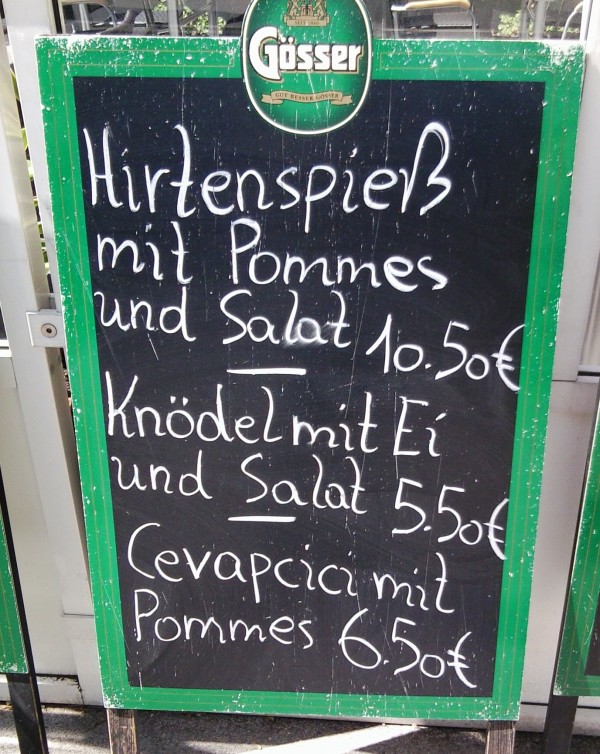 Gösser
GUT BESSER GÖSSER
Hirtenspieß
mit Pommes
und Salat 10.50€
Knödel mit Ei
und Salat 5.50€
Cevapcici mit
Pommes 6.50€